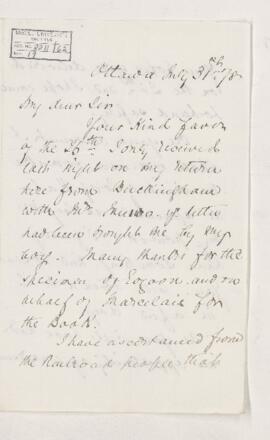 Ottawa July 31st 78
My dear Sir
Your Kind favor
of the 26th I only received
last night on my return
here from Buckingham
with Mr Munro. yr letter
had been brought me by my
boy. Many thanks for the
specimen of Eozoon. and on
behalf of for
the Book.
I have ascertained from
the Railroad people that